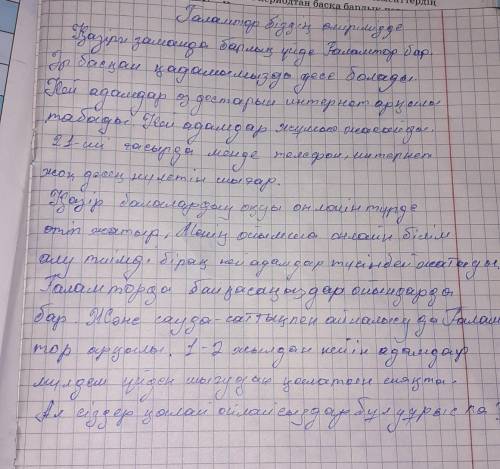 Ғаламтор біздің өмірімізде
Қазіргі заманда барлық үйде Ғаламтор бар.
Әр басқан қадамымызда десе болады.
Кей адамдар өз достарын интернет арқылы
табады. Кей адамдар жұмыс жасайды.
21-ші ғасырда менде телефон, интернет
жоқ десең күлетін шығар.
Қазір балалардың оқуы онлайн түрде
өтіп жатыр, Менің ойымша онлайн білім
алу тиімді бірақ кей адамдар түсінбей жатады.
Ғаламторда байқасаңыздар ойындарда
бар. Және сауда-саттықпен айналысу да Ғалам
тор арқылы. 1-2 жылдан кейін адамдар
мүлдем үйден шығудан қалатын сияқты.
Ал сіздер қалай ойлайсыздар бұл дұрыс па?